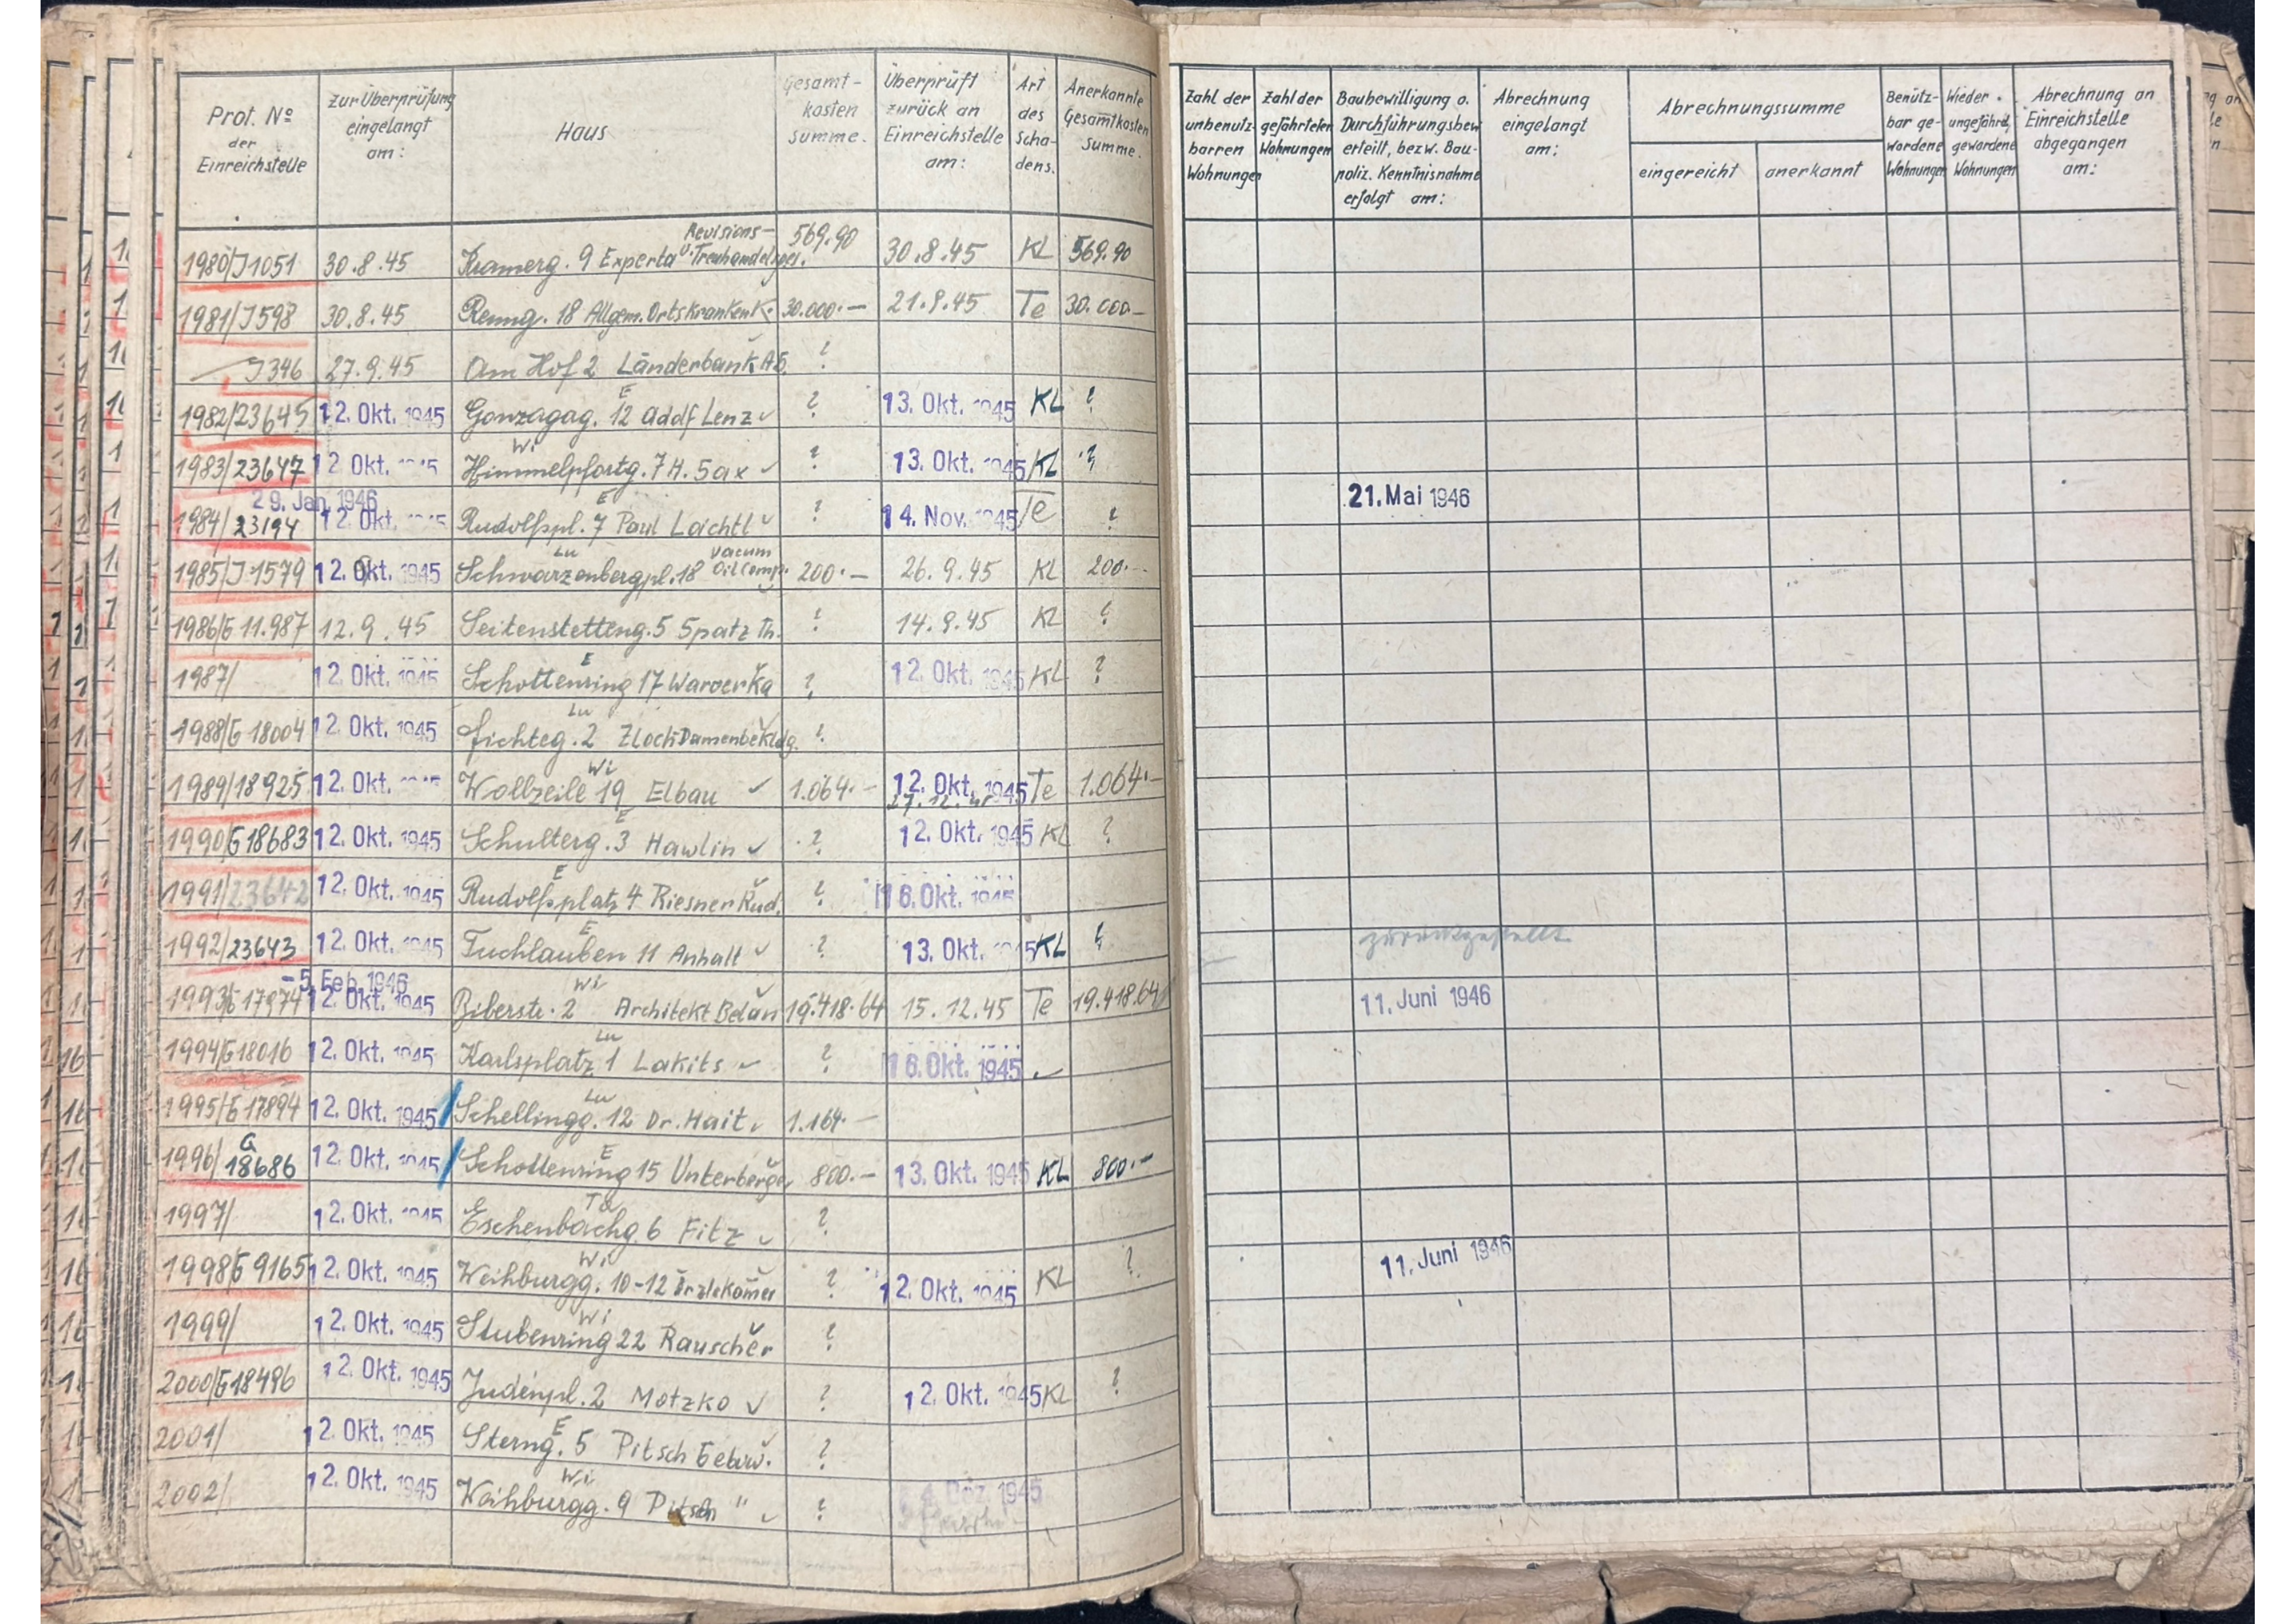 Prot. No der Einreichstelle | Zur Überprüfung eingelangt am: | Haus | Gesamt-kosten summe. | Überprüft zurück an Einreichstelle am: | Art des Scha-dens. | Anerkannte Gesamtkosten Summe. | Zahl der unbenutz-barren Wohnungen | Zahl der gefährteten Wohnungen | Baubewilligung o. Durchführungsbew erteilt, bezw. Bau-poliz. Kenntnisnahme erfolgt am: | Abrechnung eingelangt am: | Abrechnungssumme eingereicht | anerkannt | Benütz-bar ge-wordene Wohnungen | Wieder ungefährd, gewordene Wohnungen | Abrechnung an Einreichstelle abgegangen am:
1980/J1051 30.8.45 Kramerg. 9 Experta Revisions- u. Treuhandelsges. 569.90 30.8.45 KL 569.90
1981/J598 30.8.45 Renng. 18 Allgem. Ortskrankenk. 30.000.— 21.9.45 Te 30.000.—
J346 27.9.45 Am Hof 2 Länderbank AG. ?
1982/23645 12. Okt. 1945 Gonzagag. 12 Adolf Lenz E ? 13. Okt. 1945 KL ?
1983/23647 12. Okt. 1945 Himmelpfortg. 7 H. Sax Wi ? 13. Okt. 1945 KL ?
1984/23194 29. Jan. 1946 12. Okt. 1945 Rudolfspl. 7 Paul Lachtl E ? 14. Nov. 1945 Te ? 21. Mai 1946
1985/J1579 12. Okt. 1945 Schwarzenbergpl. 18 Vacum Oil Comp. Lu 200.— 26.9.45 KL 200.—
1986/G 11.987 12.9.45 Seitenstetteng. 5 Spatz Th. ? 14.9.45 KL ?
1987/ 12. Okt. 1945 Schottenring 17 Waroerka E ? 12. Okt. 1945 KL ?
1988/G 18004 12. Okt. 1945 Fichteg. 2 Zloch Damenbekldg. Lu ?
1989/18925 12. Okt. Wollzeile 19 Elbau Wi 1.064.— 12. Okt. 1945 Te 1.064.—
1990/G 18683 12. Okt. 1945 Schulterg. 3 Hawlin E ? 12. Okt. 1945 KL ?
1991/23642 12. Okt. 1945 Rudolfsplatz 4 Riesner Rud. E ? 16. Okt. 1945
1992/23643 12. Okt. 1945 Tuchlauben 11 Anhalt E ? 13. Okt. 1945 KL ? zurückgestellt
1993/G 17974 -5. Feb. 1946 12. Okt. 1945 Biberstr. 2 Architekt Belan Wi 19.418.64 15.12.45 Te 19.418.64 11. Juni 1946
1994/G 18016 12. Okt. 1945 Karlsplatz 1 Lakits Lu ? 16. Okt. 1945
1995/G 17894 12. Okt. 1945 Schellingg. 12 Dr. Hait Lu 1.164.—
1996/G 18686 12. Okt. 1945 Schottenring 15 Unterberger E 800.— 13. Okt. 1945 KL 800.—
1997/ 12. Okt. 1945 Eschenbachg. 6 Fitz ?
1998/G 9165 12. Okt. 1945 Weihburgg. 10-12 Ärztekamer Wi ? 12. Okt. 1945 KL ? 11. Juni 1946
1999/ 12. Okt. 1945 Stubenring 22 Rauscher Wi ?
2000/G 18496 12. Okt. 1945 Judenpl. 2 Motzko ? 12. Okt. 1945 KL ?
2001/ 12. Okt. 1945 Sterng. 5 Pitsch E ?
2002/ 12. Okt. 1945 Weihburgg. 9 Pitsch " Wi ? Dez. 1945